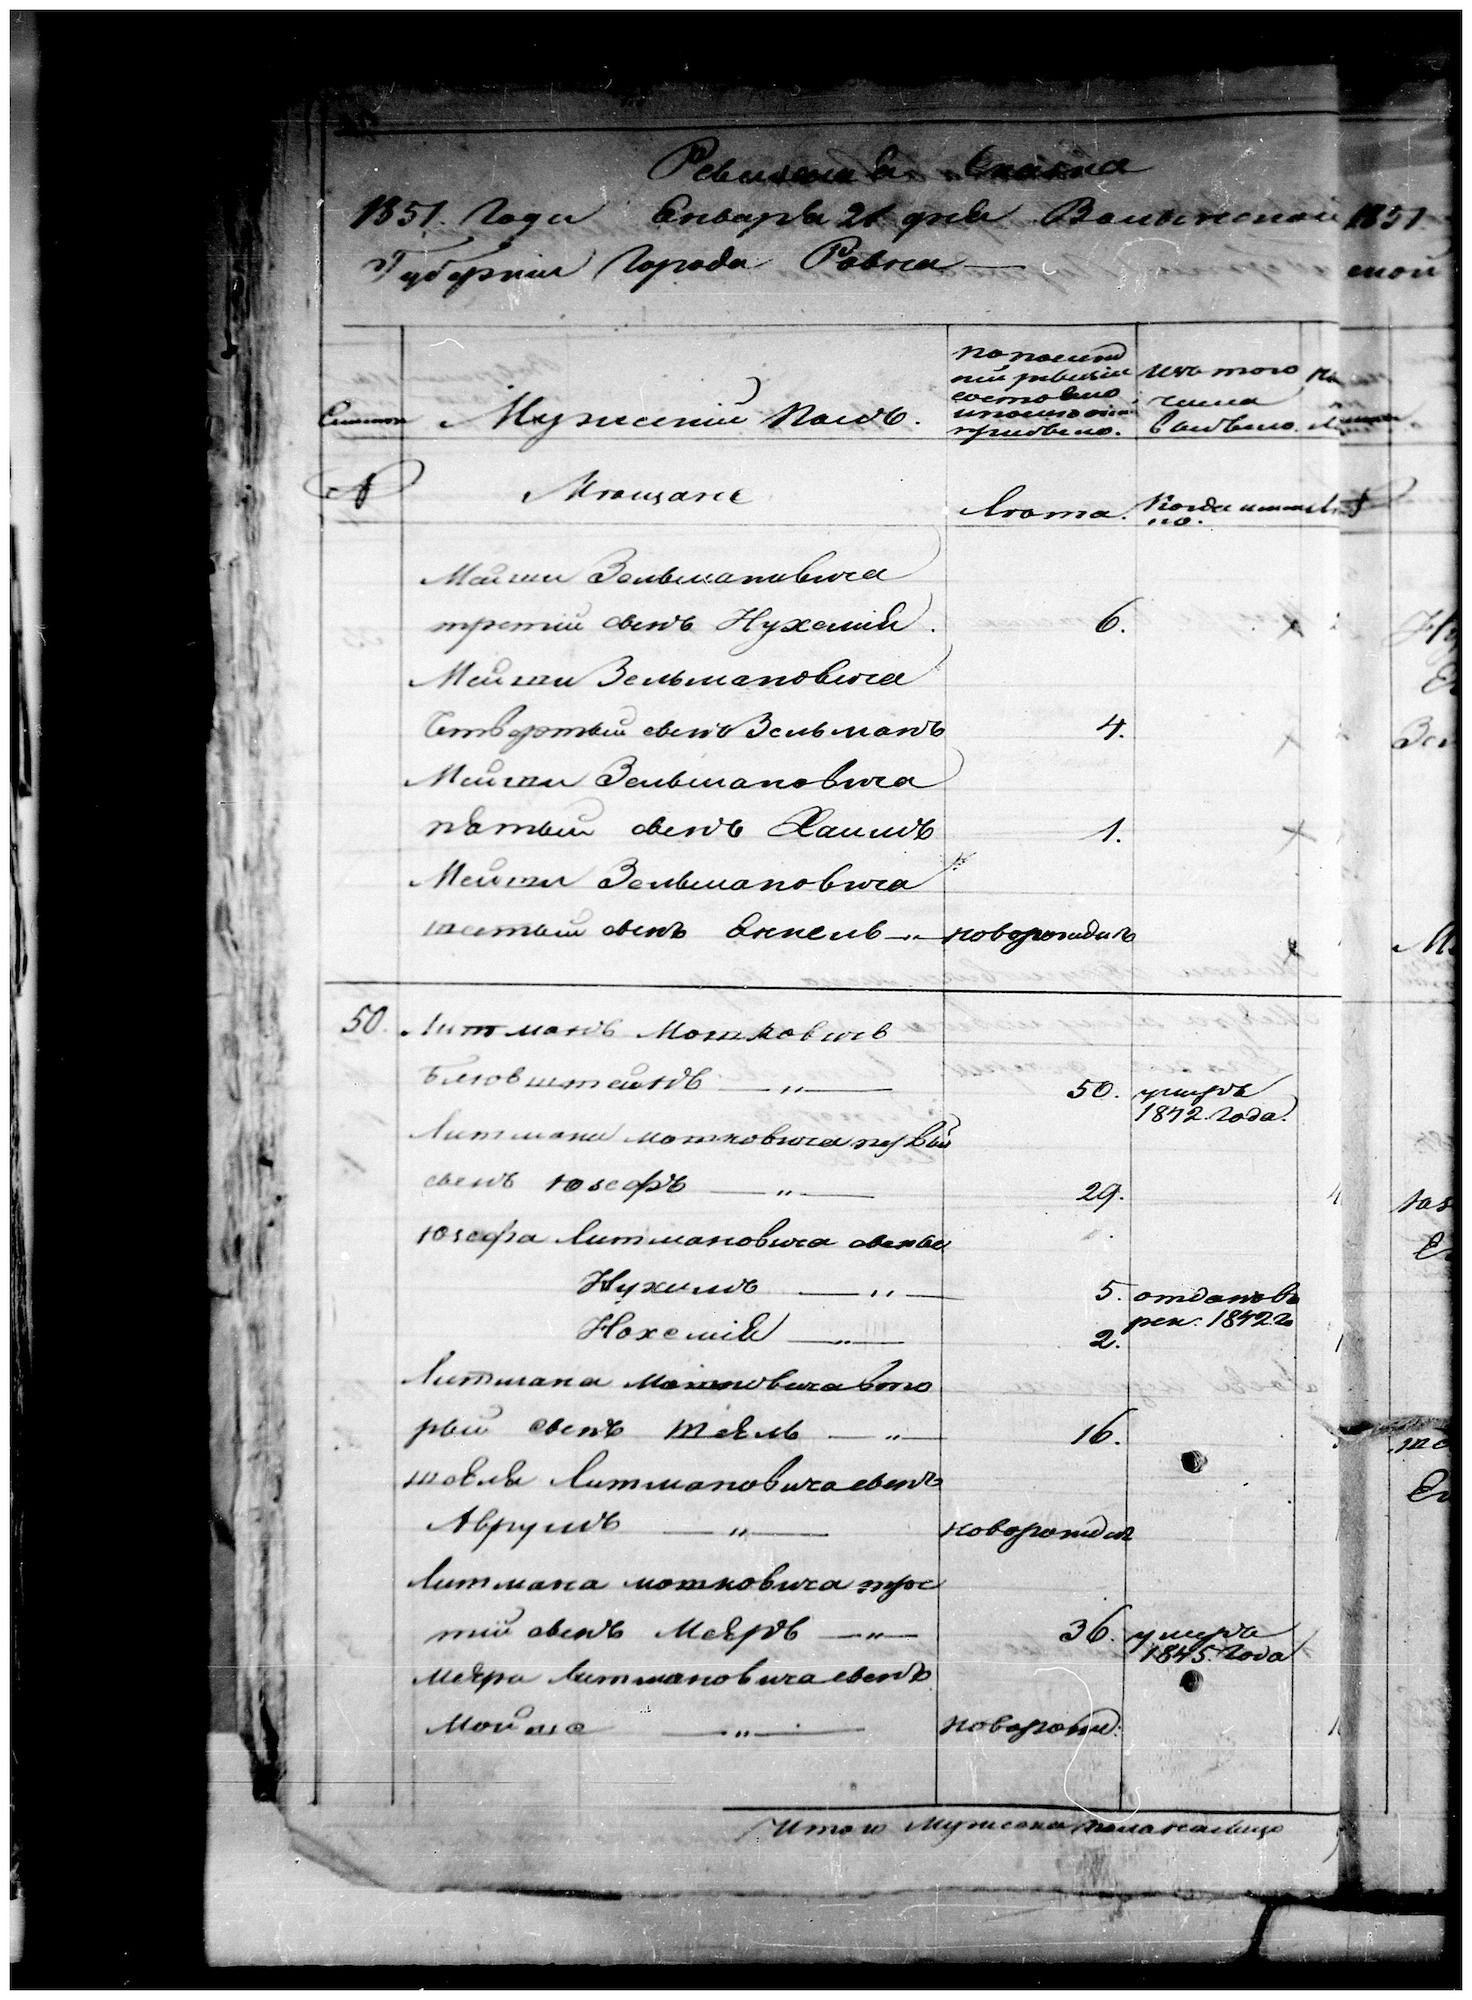 Ревизская Сказка
1851. Года Енваря 21 дня Волынской
Губернии Города Ровна
Семьи
Мужеский Полъ.
По послед
ней ревизии
состояло
и после оной
прибыло.
Изъ того
числа
выбыло.
№
Мещане
Лета.
Когда имен
но.
Мошки Зельмановича
третий сынъ Нухемия.
6.
Мошки Зельмановича
Четвертый сынъ Зельманъ
4.
Мошки Зельмановича
пятый сынъ Хаимъ
1.
Мошки Зельмановича
шестый сынъ Янкель — " — новорожденъ
50.
Литманъ Мошковичъ
Блювштейнъ — " —
50.
умеръ
1842. года.
Литмана мошковича первый
сынъ Юзефъ — " —
29.
Юзефа Литмановича сыновья
Нухимъ — " —
5.
отданъ въ
рек: 1842 г
Нохемия — " —
2.
Литмана мошковича вто
рый сынъ Шаель — " —
16.
шаеля Литмановича сынъ
Аврумъ — " —
новорожден
Литмана мошковича тре
тий сынъ Меяръ — " —
36.
умеръ
1845 года
меяра Литмановича сынъ
Мойше — " —
новорожд:
Итого Мужеска пола налицо
1851.
ской